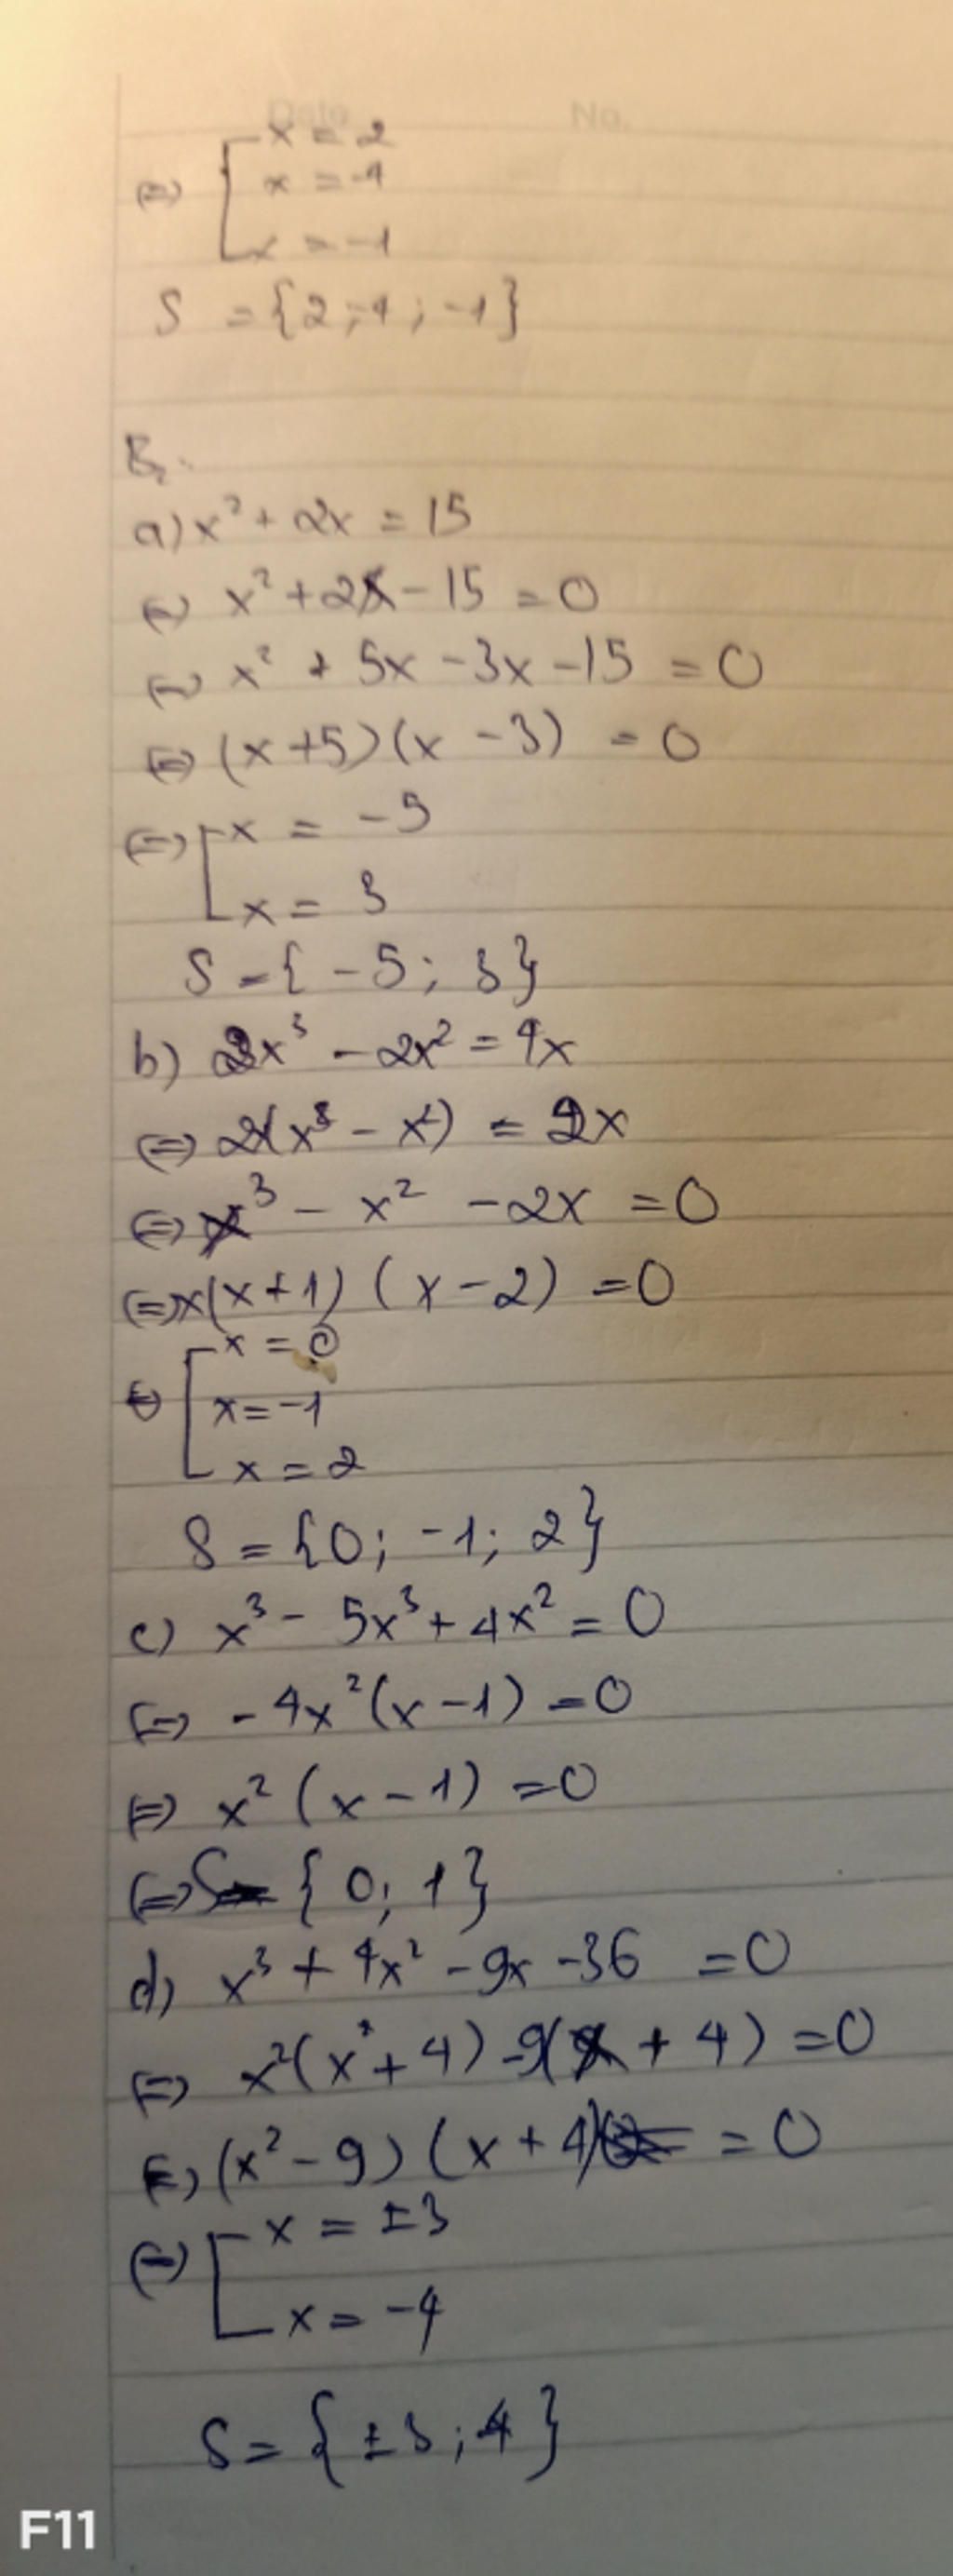 Date No.
(=) [ x = 2
x = -4
x = -1
S = {2; -4; -1}
B.
a) x² + 2x = 15
(=) x² + 2x - 15 = 0
(=) x² + 5x - 3x - 15 = 0
(=) (x + 5)(x - 3) = 0
(=) [ x = -5
x = 3
S = { -5; 3}
b) 2x³ - 2x² = 4x
(=) 2(x³ - x²) = 2x
(=) x³ - x² - 2x = 0
(=) x(x + 1) (x - 2) = 0
(=) [ x = 0
x = -1
x = 2
S = {0; -1; 2}
c) x³ - 5x³ + 4x² = 0
(=) - 4x²(x - 1) = 0
(=) x² (x - 1) = 0
(=) S = { 0; 1}
d) x³ + 4x² - 9x - 36 = 0
(=) x²(x² + 4) - 9(x + 4) = 0
(=) (x² - 9) (x + 4) = 0
(=) [ x = ±3
x = -4
S = {±3; 4}
F11